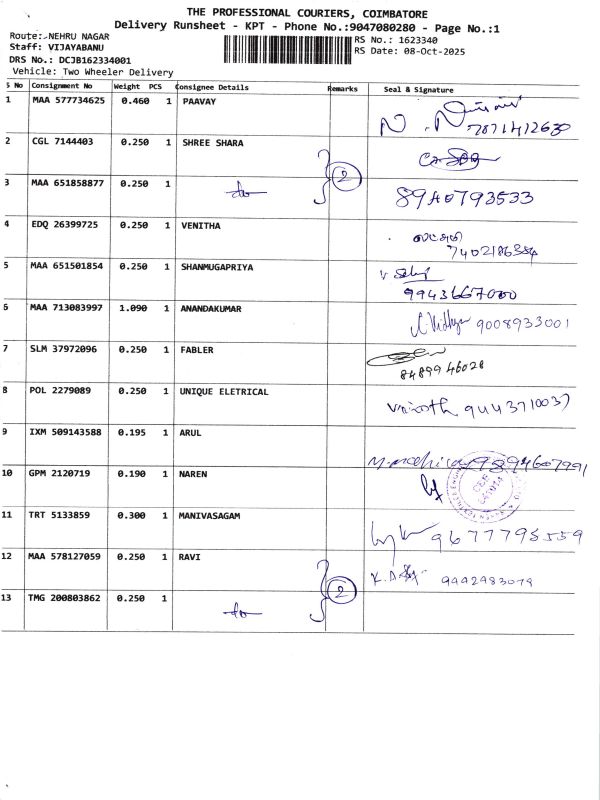 THE PROFESSIONAL COURIERS, COIMBATORE
Delivery Runsheet - KPT - Phone No.:9047080280 - Page No.:1
Route:-NEHRU NAGAR
Staff: VIJAYABANU
DRS No.: DCJB162334001
Vehicle: Two Wheeler Delivery
RS No.: 1623340
RS Date: 08-Oct-2025
S No Consignment No Weight PCS Consignee Details Remarks Seal & Signature
1 MAA 577734625 0.460 1 PAAVAY
7871412630
2 CGL 7144403 0.250 1 SHREE SHARA
2
3 MAA 651858877 0.250 1 do
8940793533
4 EDQ 26399725 0.250 1 VENITHA
7402186384
5 MAA 651501854 0.250 1 SHANMUGAPRIYA
9943667000
6 MAA 713083997 1.090 1 ANANDAKUMAR 9008933001
7 SLM 37972096 0.250 1 FABLER
8489946028
8 POL 2279089 0.250 1 UNIQUE ELETRICAL Vinoth 9443710037
9 IXM 509143588 0.195 1 ARUL
9894607991
10 GPM 2120719 0.190 1 NAREN
11 TRT 5133859 0.300 1 MANIVASAGAM
9677795559
12 MAA 578127059 0.250 1 RAVI
9442983078
2
13 TMG 200803862 0.250 1 do